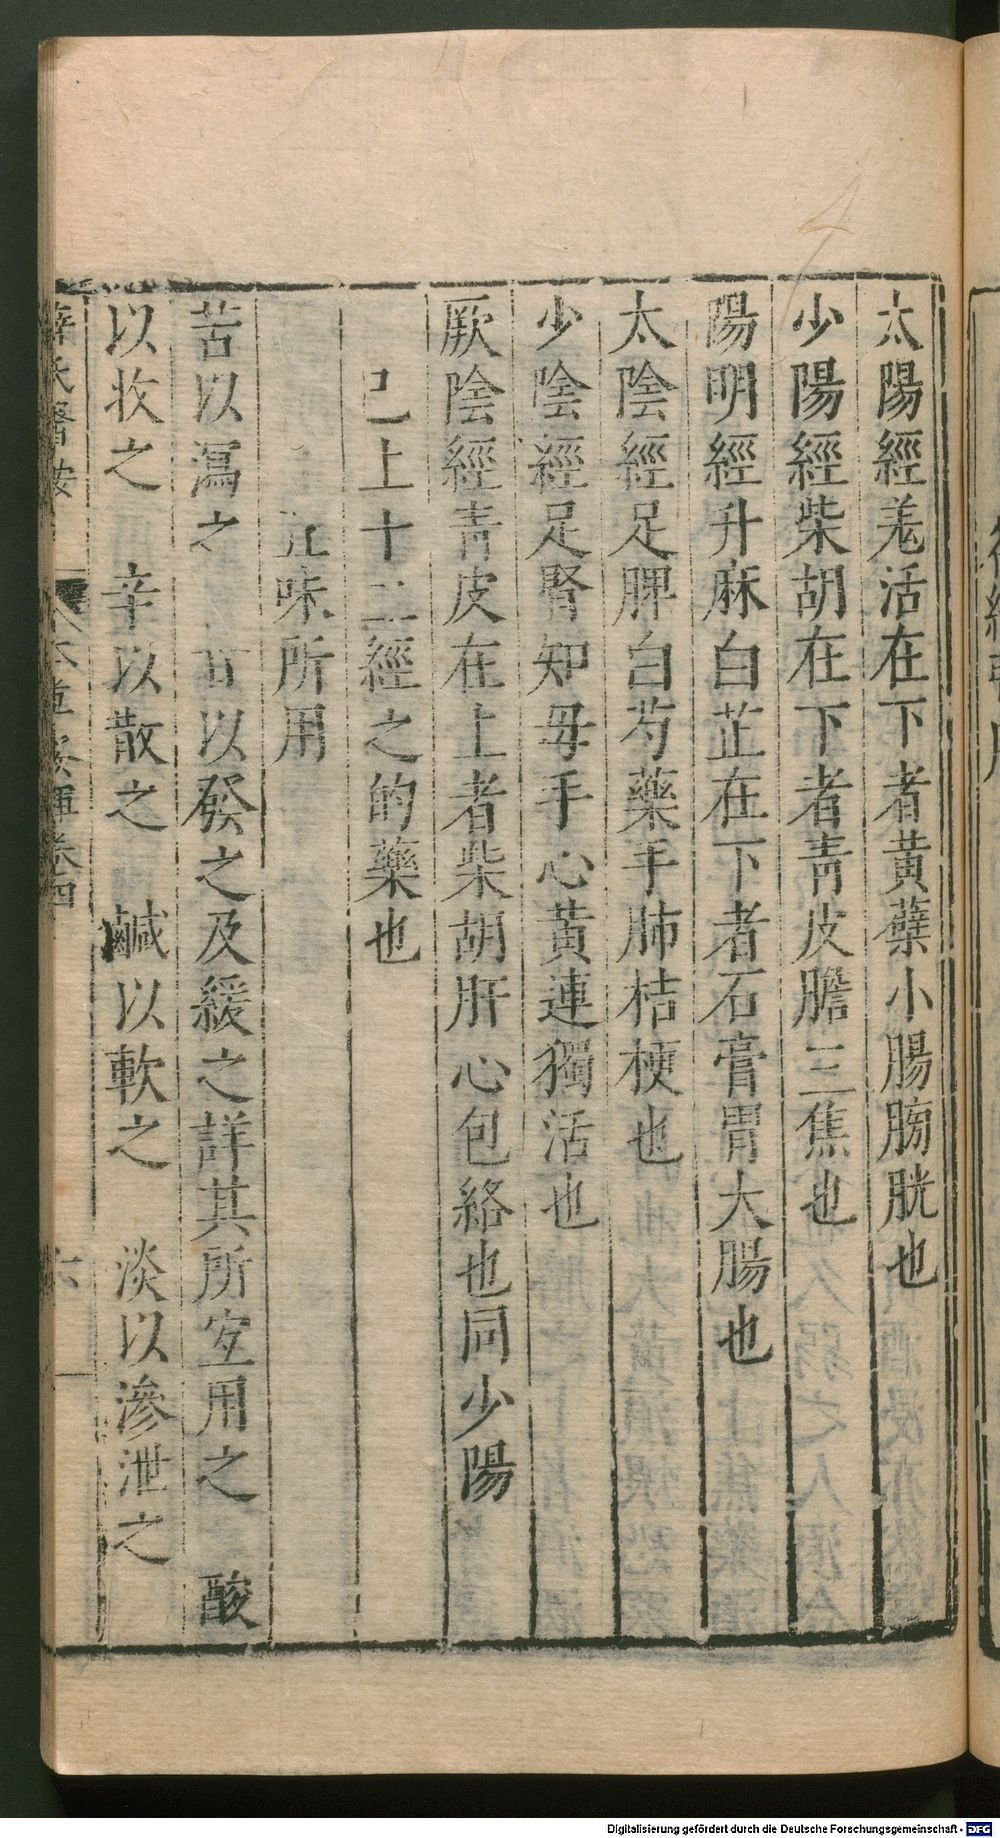 太陽經羗活在下者黃蘗小腸膀胱也
少陽經柴胡在下者靑皮膽三焦也
陽明經升麻白芷在下者石膏胃大腸也
太陰經足脾白芍藥手肺桔梗也
少陰經足腎知母手心黃連獨活也
厥陰經靑皮在上者柴胡肝心包絡也同少陽
已上十二經之的藥也
五味所用
苦以瀉之 甘以發之及緩之詳其所宜用之 酸
以收之 辛以散之 鹹以軟之 淡以滲泄之
薛氏醫按 本草發揮卷四 六
Digitalisierung gefördert durch die Deutsche Forschungsgemeinschaft - DFG